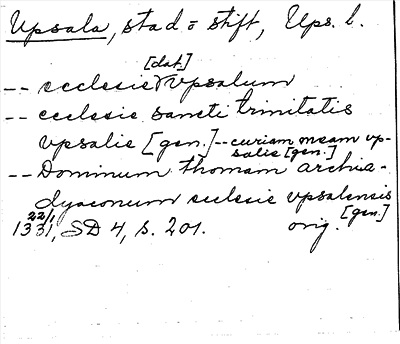 Upsala, stad o stift, Ups. l.
[dat.]
-- ecclesie Vpsalum
-- ecclesie sancti trinitatis
vpsalie [gen.] -- curiam meam vp-
salie [gen.]
-- Dominum thomam archia-
dyaconum eclesie vpsalensis
[gen.]
22/1
1331, SD 4, s. 201. orig.